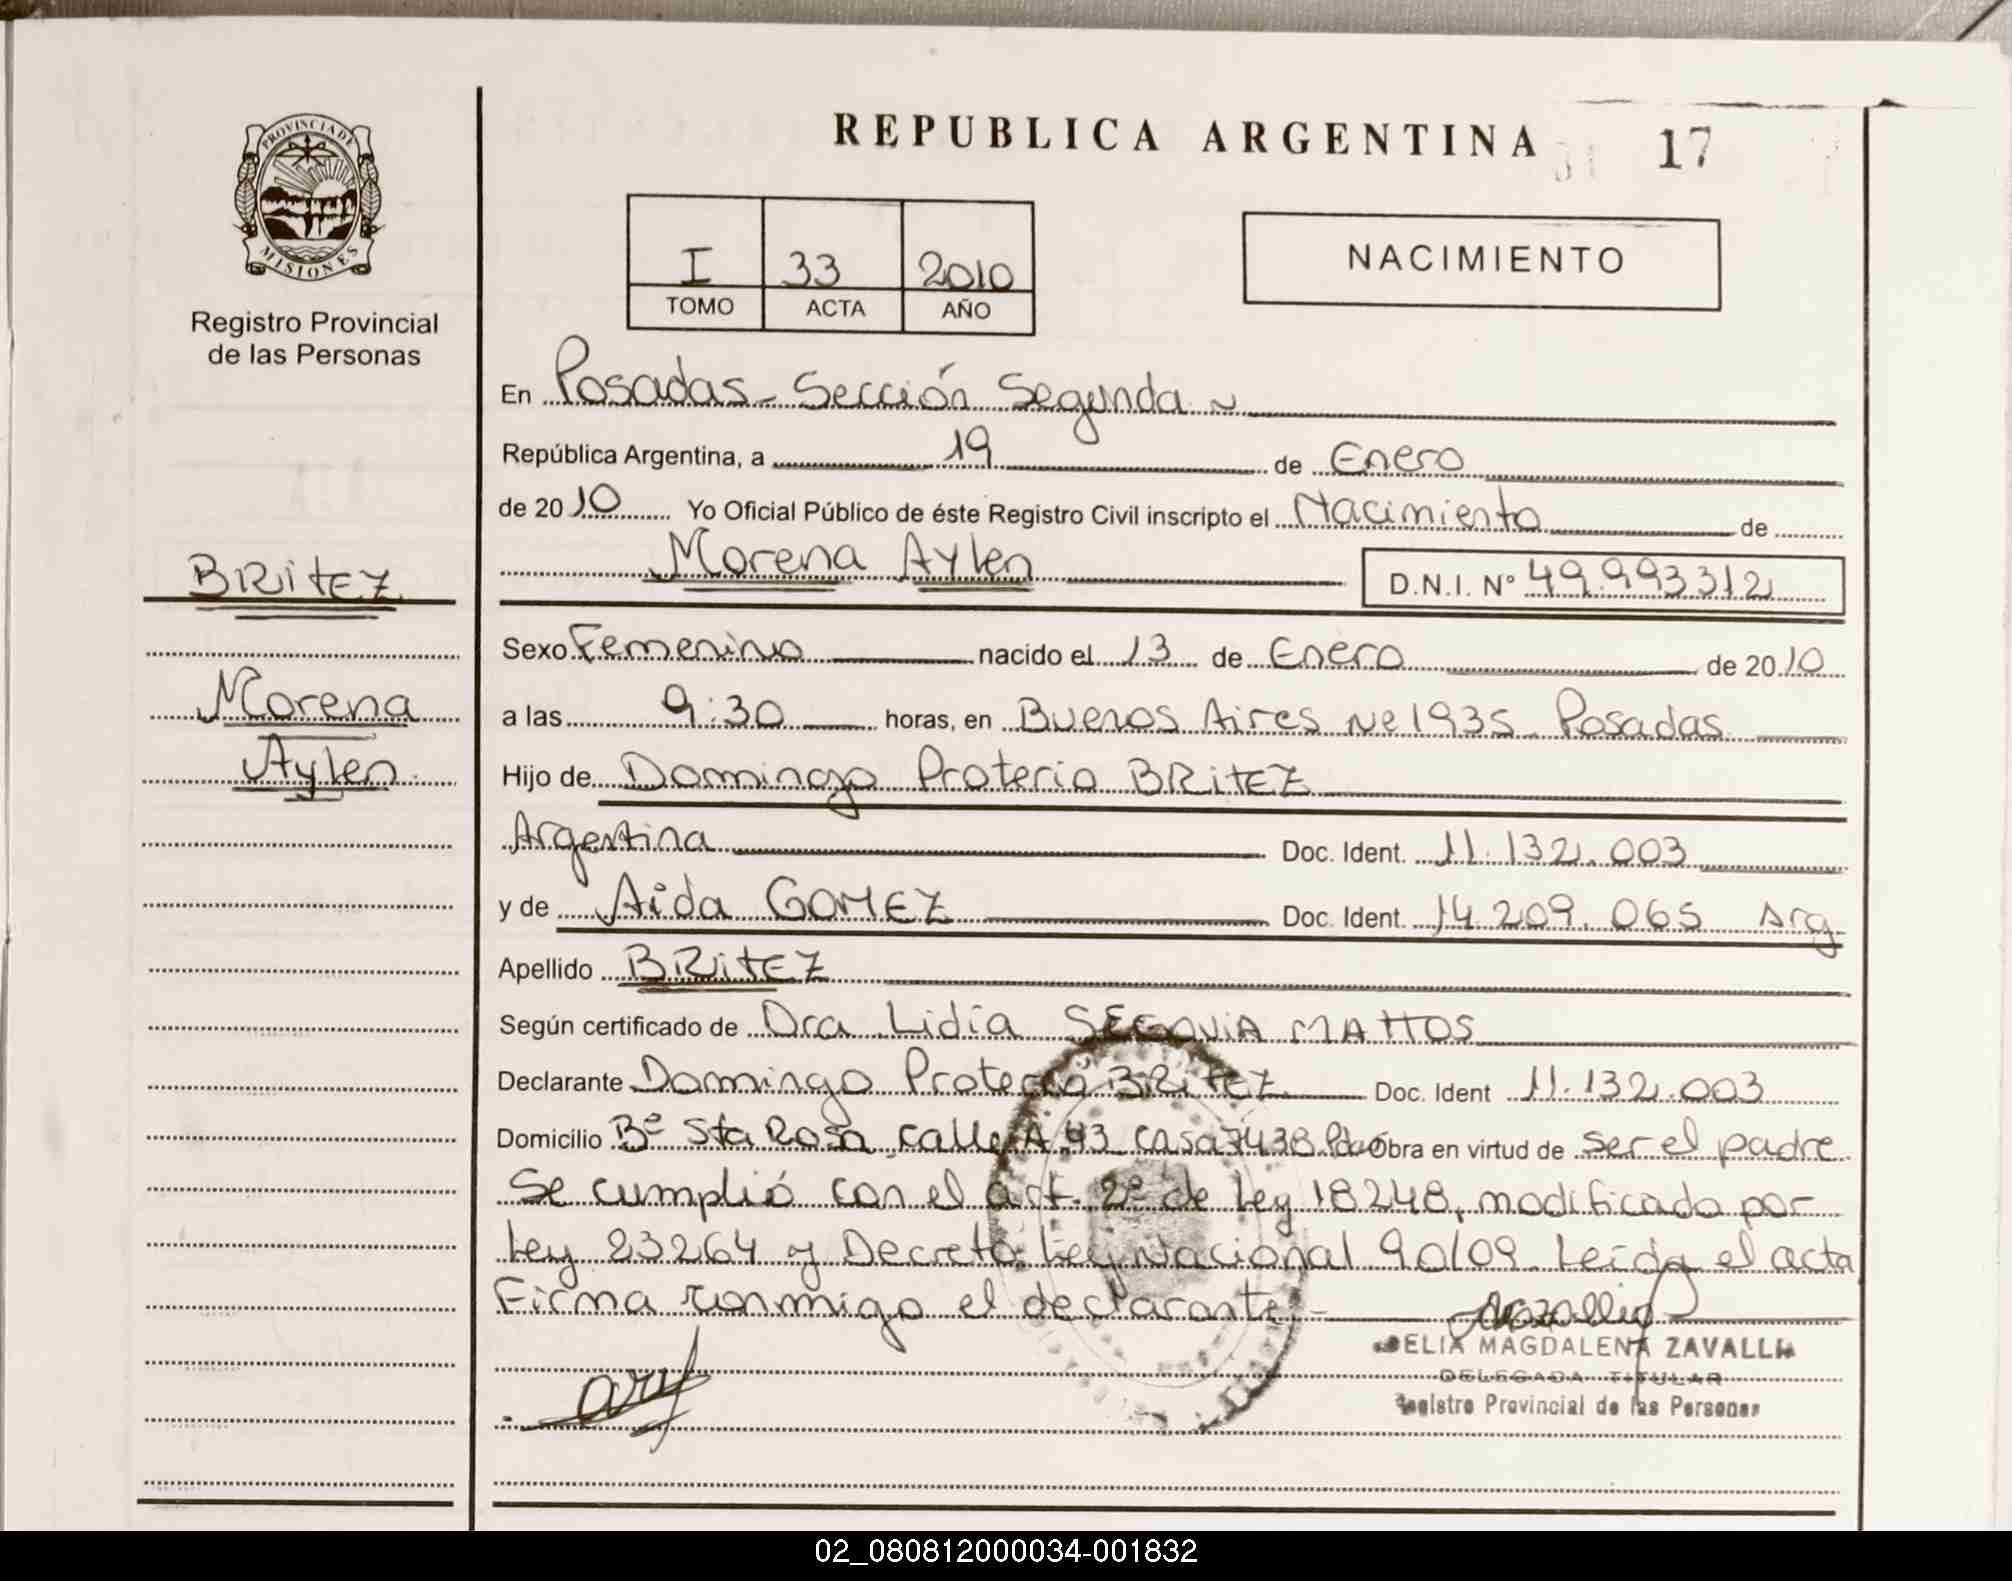 PROVINCIA DE
MISIONES
Registro Provincial
de las Personas
BRITEZ
Morena
Aylen
REPUBLICA ARGENTINA
17
I 33 2010
TOMO ACTA AÑO
NACIMIENTO
En Posadas - Sección Segunda
República Argentina, a 19 de Enero
de 2010 Yo Oficial Público de éste Registro Civil inscripto el Nacimiento de
Morena Aylen D.N.I. Nº 49.993312
Sexo Femenino nacido el 13 de Enero de 2010
a las 9:30 horas, en Buenos Aires Nº 1935 - Posadas
Hijo de Domingo Proterio BRITEZ
Argentina Doc. Ident. 11.132.003
y de Aida GOMEZ Doc. Ident. 14.209.065 Arg
Apellido BRITEZ
Según certificado de Dra Lidia SEGOVIA MATTOS
Declarante Domingo Proterio BRITEZ Doc. Ident 11.132.003
Domicilio Bº Sta Rosa calle A 43 casa 7438 Pdas Obra en virtud de ser el padre
Se cumplió con el art. 2º de Ley 18248, modificado por
Ley 23264 y Decreto Ley Nacional 90/09. Leída el acta
Firma conmigo el declarante -
DELIA MAGDALENA ZAVALLA
DELEGADA TITULAR
Registro Provincial de las Personas
02_080812000034-001832